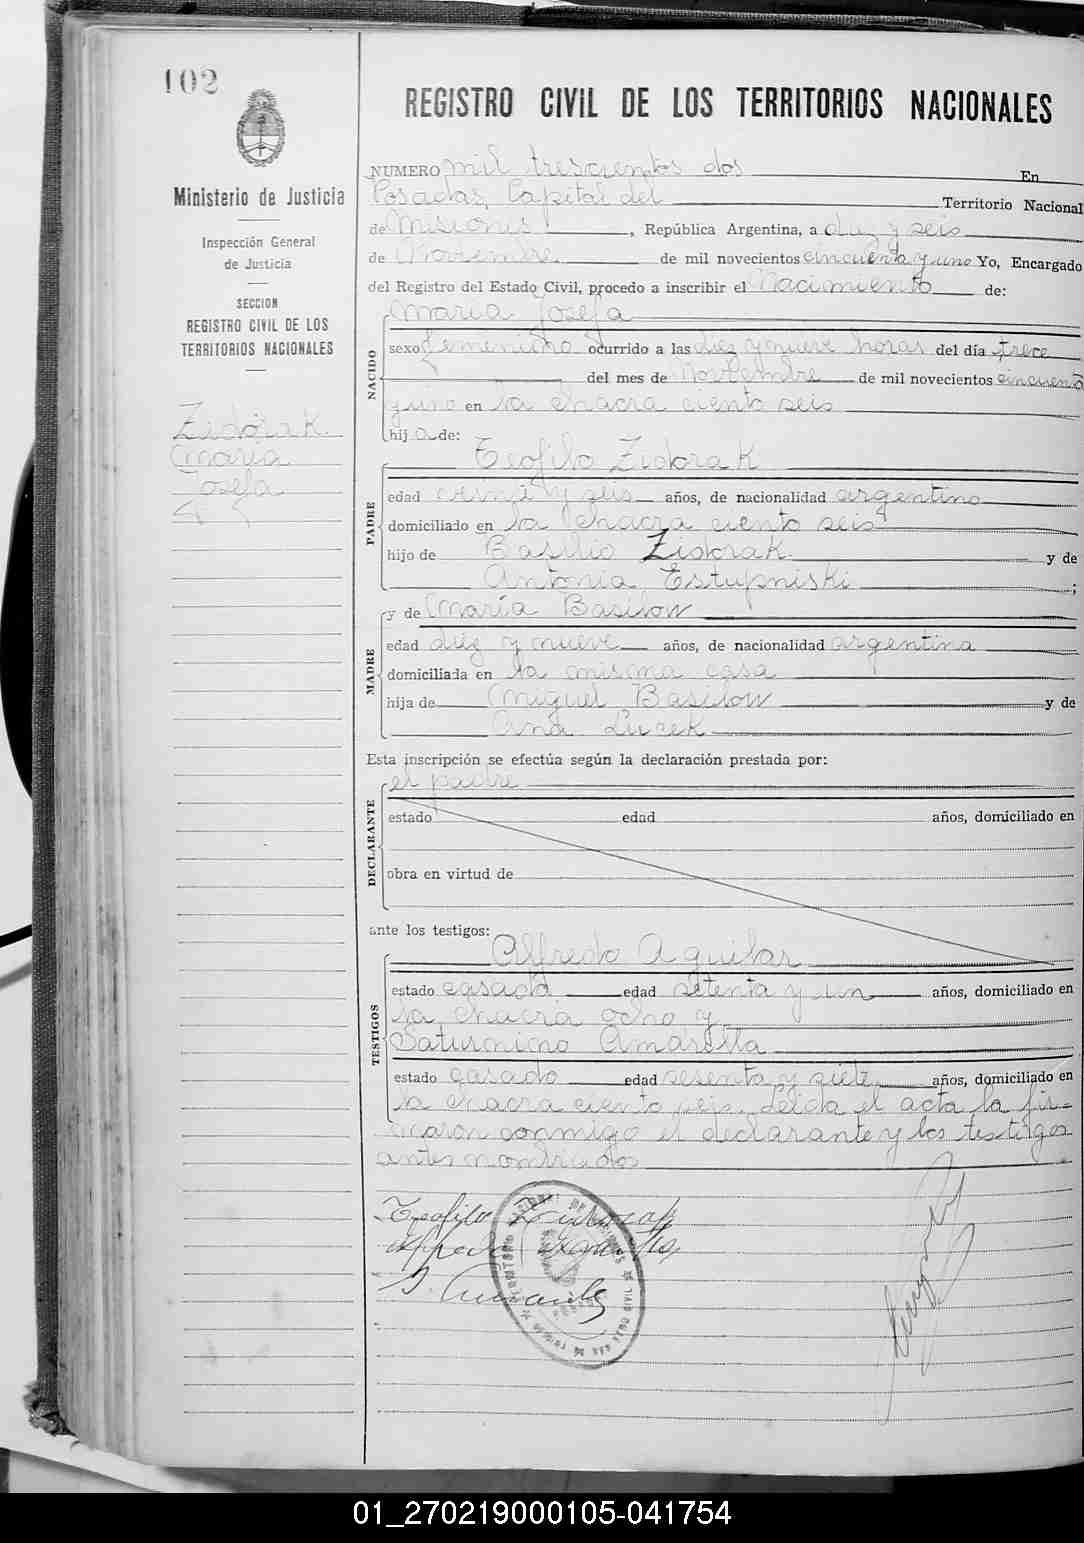 102
Ministerio de Justicia
Inspección General
de Justicia
SECCION
REGISTRO CIVIL DE LOS
TERRITORIOS NACIONALES
Zidorak
Maria
Josefa
REGISTRO CIVIL DE LOS TERRITORIOS NACIONALES
NUMERO mil trescientos dos En
Posadas, Capital del Territorio Nacional
de Misiones, República Argentina, a diez y seis
de Noviembre de mil novecientos cincuenta y uno Yo, Encargado
del Registro del Estado Civil, procedo a inscribir el Nacimiento de:
NACIDO
Maria Josefa
sexo femenino ocurrido a las diez y nueve horas del día trece
del mes de Noviembre de mil novecientos cincuenta
y uno en la chacra ciento seis
hija de:
PADRE
Teofilo Zidorak
edad veinte y seis años, de nacionalidad argentino
domiciliado en la chacra ciento seis
hijo de Basilio Zidorak y de
Antonia Estupniski;
MADRE
y de María Basilow
edad diez y nueve años, de nacionalidad argentina
domiciliada en la misma casa
hija de Miguel Basilow y de
Ana Lucek
Esta inscripción se efectúa según la declaración prestada por:
DECLARANTE
el padre
estado edad años, domiciliado en
obra en virtud de
ante los testigos:
TESTIGOS
Alfredo Aguilar
estado casado edad setenta y un años, domiciliado en
la chacra ocho y
Saturnino Amarilla
estado casado edad sesenta y siete años, domiciliado en
la chacra ciento seis. Leida el acta la fir-
maron conmigo el declarante y los testigos
antes nombrados
Teofilo
01_270219000105-041754